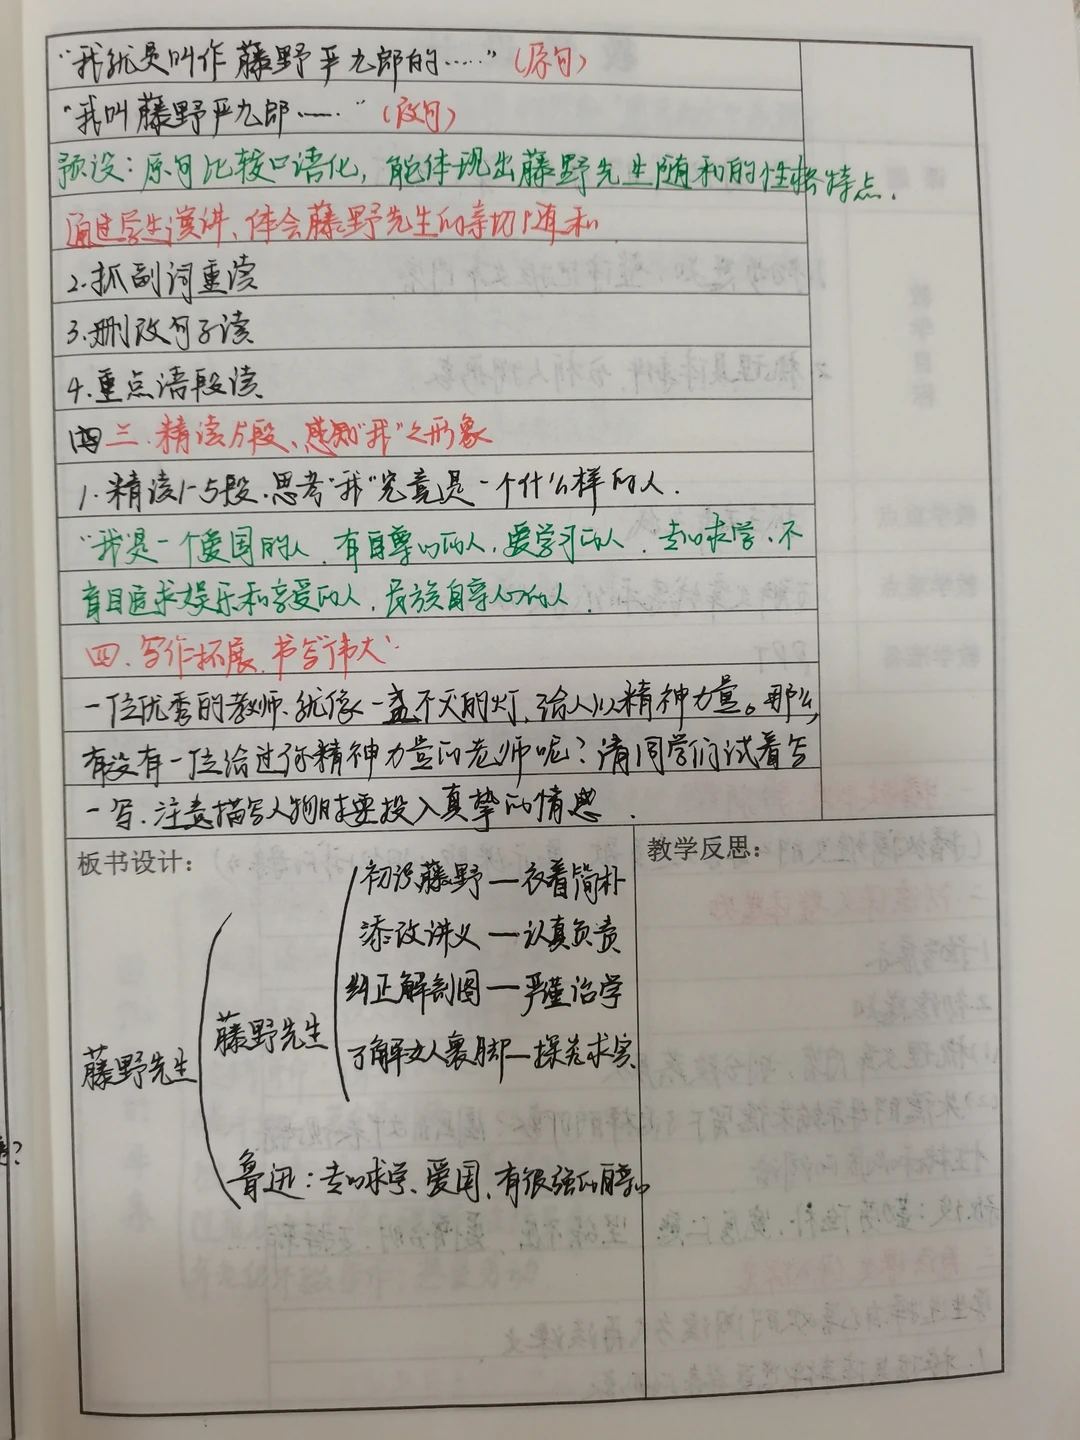 “我就是叫作藤野严九郎的……”（原句）
“我叫藤野严九郎……”（改句）
预设：原句比较口语化，能体现出藤野先生随和的性格特点．
通过学生演讲、体会藤野先生的亲切随和
2.抓副词重读
3.删改句子读
4.重点语段读
四三．精读片段、感知“我”之形象
1.精读1-5段．思考“我”究竟是一个什么样的人．
“我是一个爱国的人、有自尊心的人，爱学习的人．专心求学、不
盲目追求娱乐和享受的人，民族自尊心的人
四．写作拓展．书写“伟大”
一位优秀的教师、就像一盏不灭的灯，给人以精神力量。那么，
有没有一位给过你精神力量的老师呢？请同学们试着写
一写．注意描写人物时要投入真挚的情思．
板书设计：
教学反思：
初识藤野—衣着简朴
添改讲义—认真负责
纠正解剖图—严谨治学
了解女人裹脚—探究求实
藤野先生
藤野先生
鲁迅：专心求学、爱国、有很强的自尊心